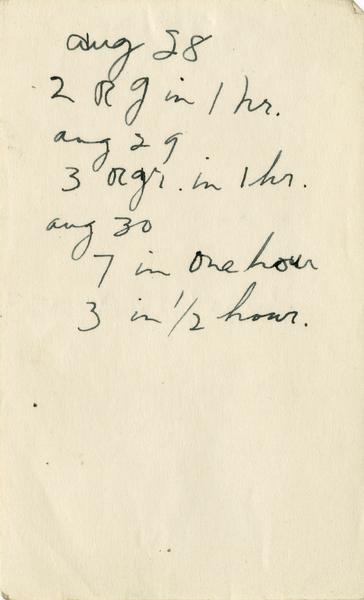 aug 28
2 R g in 1 hr.
aug 29
3 Rgr. in 1 hr.
aug 30
7 in one hour
3 in 1/2 hour.